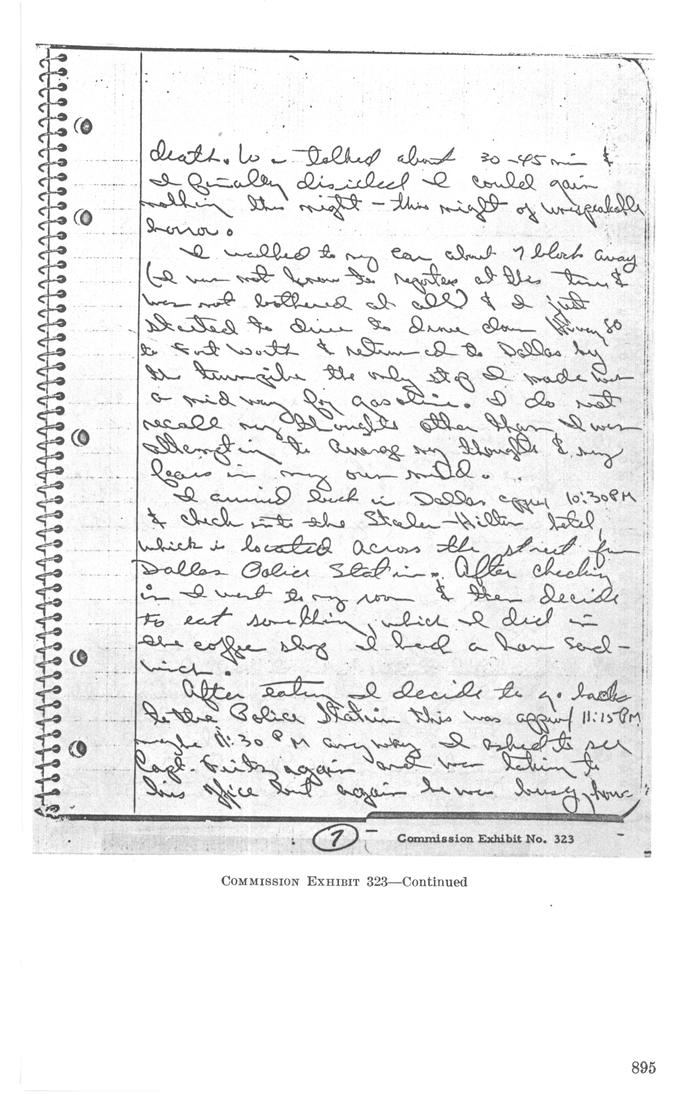 death. We talked about 30-45 min &
I finally disicded I could gain
nothing this night - this night of unspeakable
horror.
I walked to my car about 7 block away
(I was not know to reporters at this time &
was not bothered at all) & I just
started to drive to drove down Highway 80
to Fort Worth & returned to Dallas by
the turnpike the only stop I made was
a mid way for gasoline. I do not
recall my thoughts other than I was
attempting to my thoughts & my
fears in my own mind.
I arrived back in Dallas approx 10:30 PM
& check into the Statler-Hilton hotel,
which is located across the street from
Dallas Police Station. After checking
in I went to my room & then decide
to eat something, which I did in
the coffee shop I had a ham sand-
wich.
After eating I decide to go back
to the Police Station this was approx 11:15 PM
maybe 11:30 PM anyway I asked to see
Capt. Fritz again and was taking to
his office but again he was busy, how
7
Commission Exhibit No. 323
COMMISSION EXHIBIT 323—Continued
895